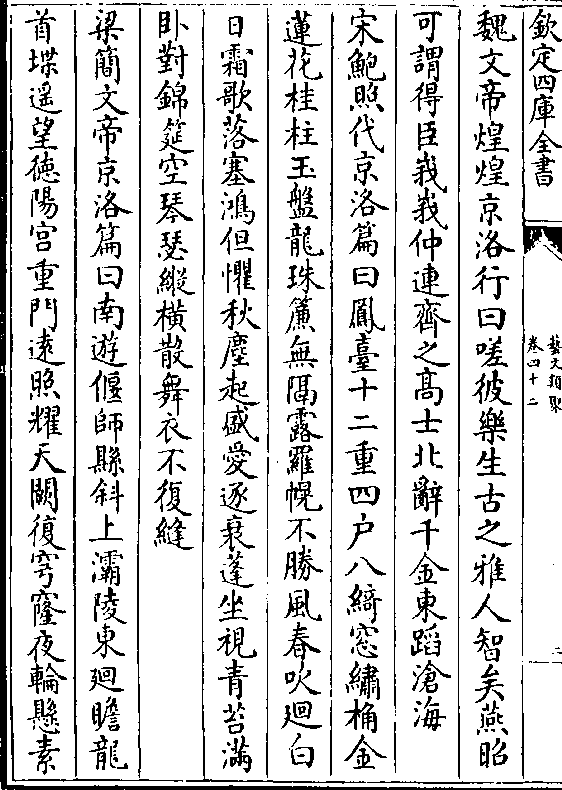 欽定四庫全書
藝文類聚
卷四十二
二
魏文帝煌煌京洛行曰嗟彼樂生古之雅人智矣燕昭
可謂得臣峩峩仲連齊之髙士北辭千金東蹈滄海
宋鮑照代京洛篇曰鳳臺十二重四户八綺窓繡桷金
蓮花桂柱玉盤龍珠簾無隔露羅幌不勝風春吹廻白
日霜歌落塞鴻但懼秋塵起盛愛逐衰蓬坐視青苔滿
卧對錦筵空琴瑟縱横散舞衣不復縫
梁簡文帝京洛篇曰南遊偃師縣斜上灞陵東廻瞻龍
首堞遥望德陽宫重門逺照耀天闕復穹窿夜輪懸素